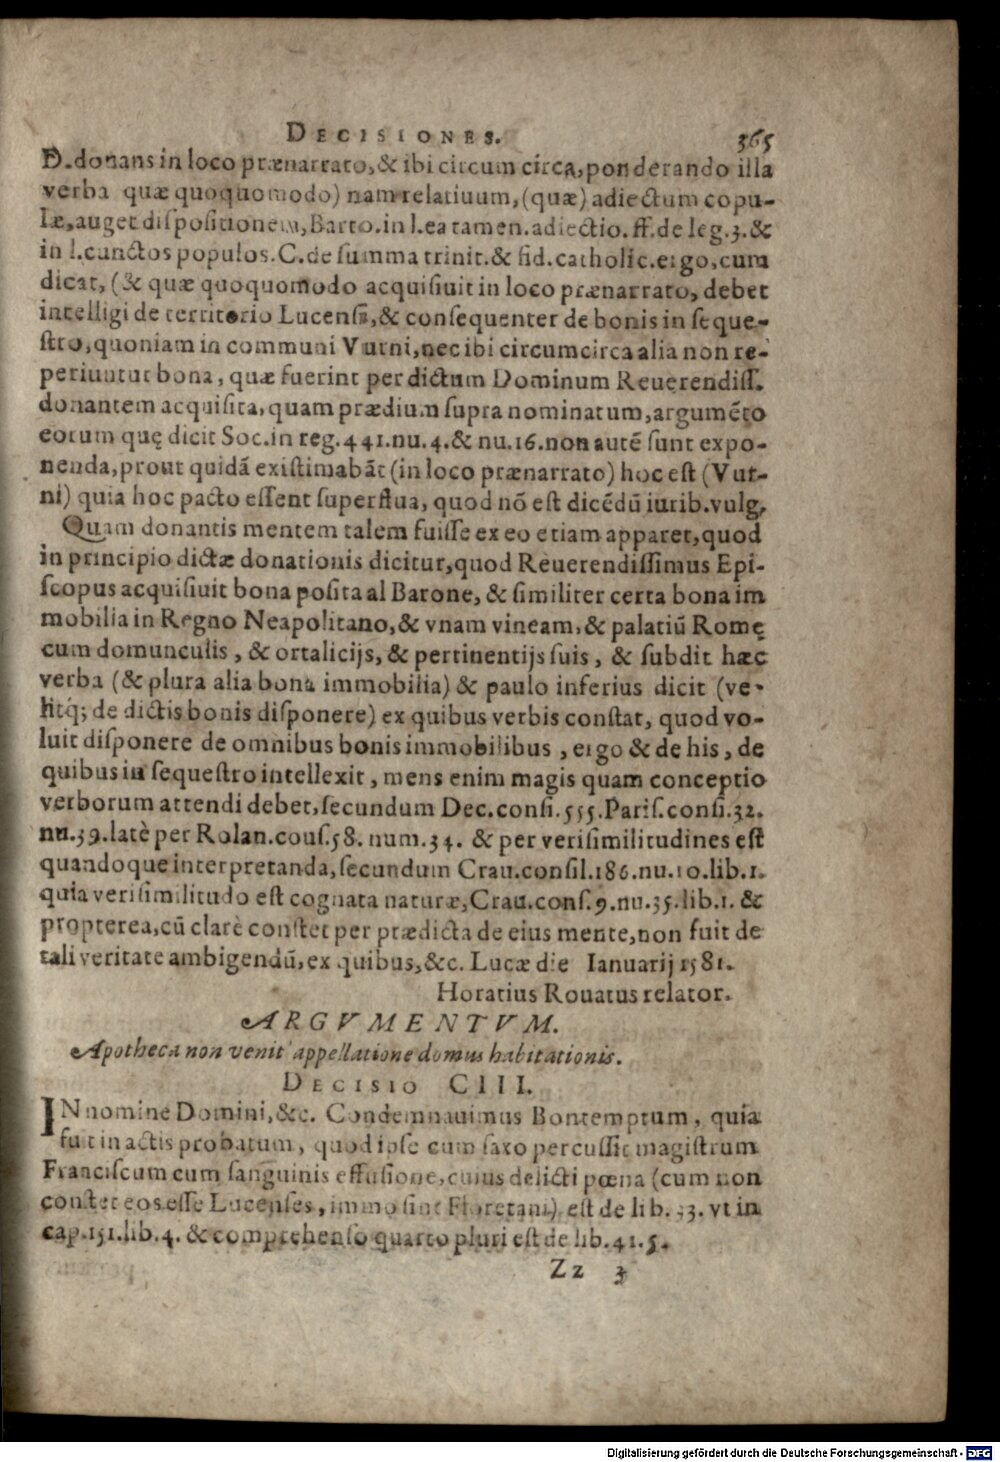 DECISIONES. 365
D. donans in loco prænarrato, & ibi circum circa, ponderando illa
verba quæ quoquomodo) nam relatiuum, (quæ) adiectum copu-
læ, auget dispositionem, Barto. in l. ea tamen. adiectio. ff. de leg. 3. &
in l. cunctos populos. C. de summa trinit. & fid. catholic. ergo, cum
dicat, (& quæ quoquomodo acquisiuit in loco prænarrato, debet
intelligi de territorio Lucensi, & consequenter de bonis in seque-
stro, quoniam in communi Vurni, nec ibi circumcirca alia non re-
periuntur bona, quæ fuerint per dictum Dominum Reuerendiss.
donantem acquisita, quam prædium supra nominatum, argumẽto
eorum quę dicit Soc. in reg. 441. nu. 4. & nu. 16. non autē sunt expo-
nenda, prout quidã existimabãt (in loco prænarrato) hoc est (Vur-
ni) quia hoc pacto essent superflua, quod nõ est dicẽdũ iurib. vulg.
Quam donantis mentem talem fuisse ex eo etiam apparet, quod
in principio dictæ donationis dicitur, quod Reuerendissimus Epi-
scopus acquisiuit bona posita al Barone, & similiter certa bona im
mobilia in Regno Neapolitano, & vnam vineam, & palatiũ Romę
cum domunculis, & ortalicijs, & pertinentijs suis, & subdit hæc
verba (& plura alia bona immobilia) & paulo inferius dicit (ve-
litq; de dictis bonis disponere) ex quibus verbis constat, quod vo-
luit disponere de omnibus bonis immobilibus, ergo & de his, de
quibus in sequestro intellexit, mens enim magis quam conceptio
verborum attendi debet, secundum Dec. consi. 555. Paris. consi. 32.
nu. 39. latè per Rolan. cous. 58. num. 34. & per verisimilitudines est
quandoque interpretanda, secundum Crau. consil. 186. nu. 10. lib. 1.
quia verisimilitudo est cognata naturæ, Crau. cons. 9. nu. 35. lib. 1. &
propterea, cũ clarè constet per prædicta de eius mente, non fuit de
tali veritate ambigendũ, ex quibus, &c. Lucæ die Ianuarij 1581.
Horatius Rouatus relator.
ARGVMENTVM.
Apotheca non venit appellatione domus habitationis.
DECISIO CIII.
IN nomine Domini, &c. Condemnauimus Bontemptum, quia
fuit in actis probatum, quod ipse cum saxo percussit magistrum
Franciscum cum sanguinis effusione, cuius delicti pœna (cum non
constet eos esse Lucenses, immo sint Floretani) est de lib. 33. vt in
cap. 151. lib. 4. & comprehenso quarto pluri est de lib. 41. 5.
Zz 3
Digitalisierung gefördert durch die Deutsche Forschungsgemeinschaft - DFG